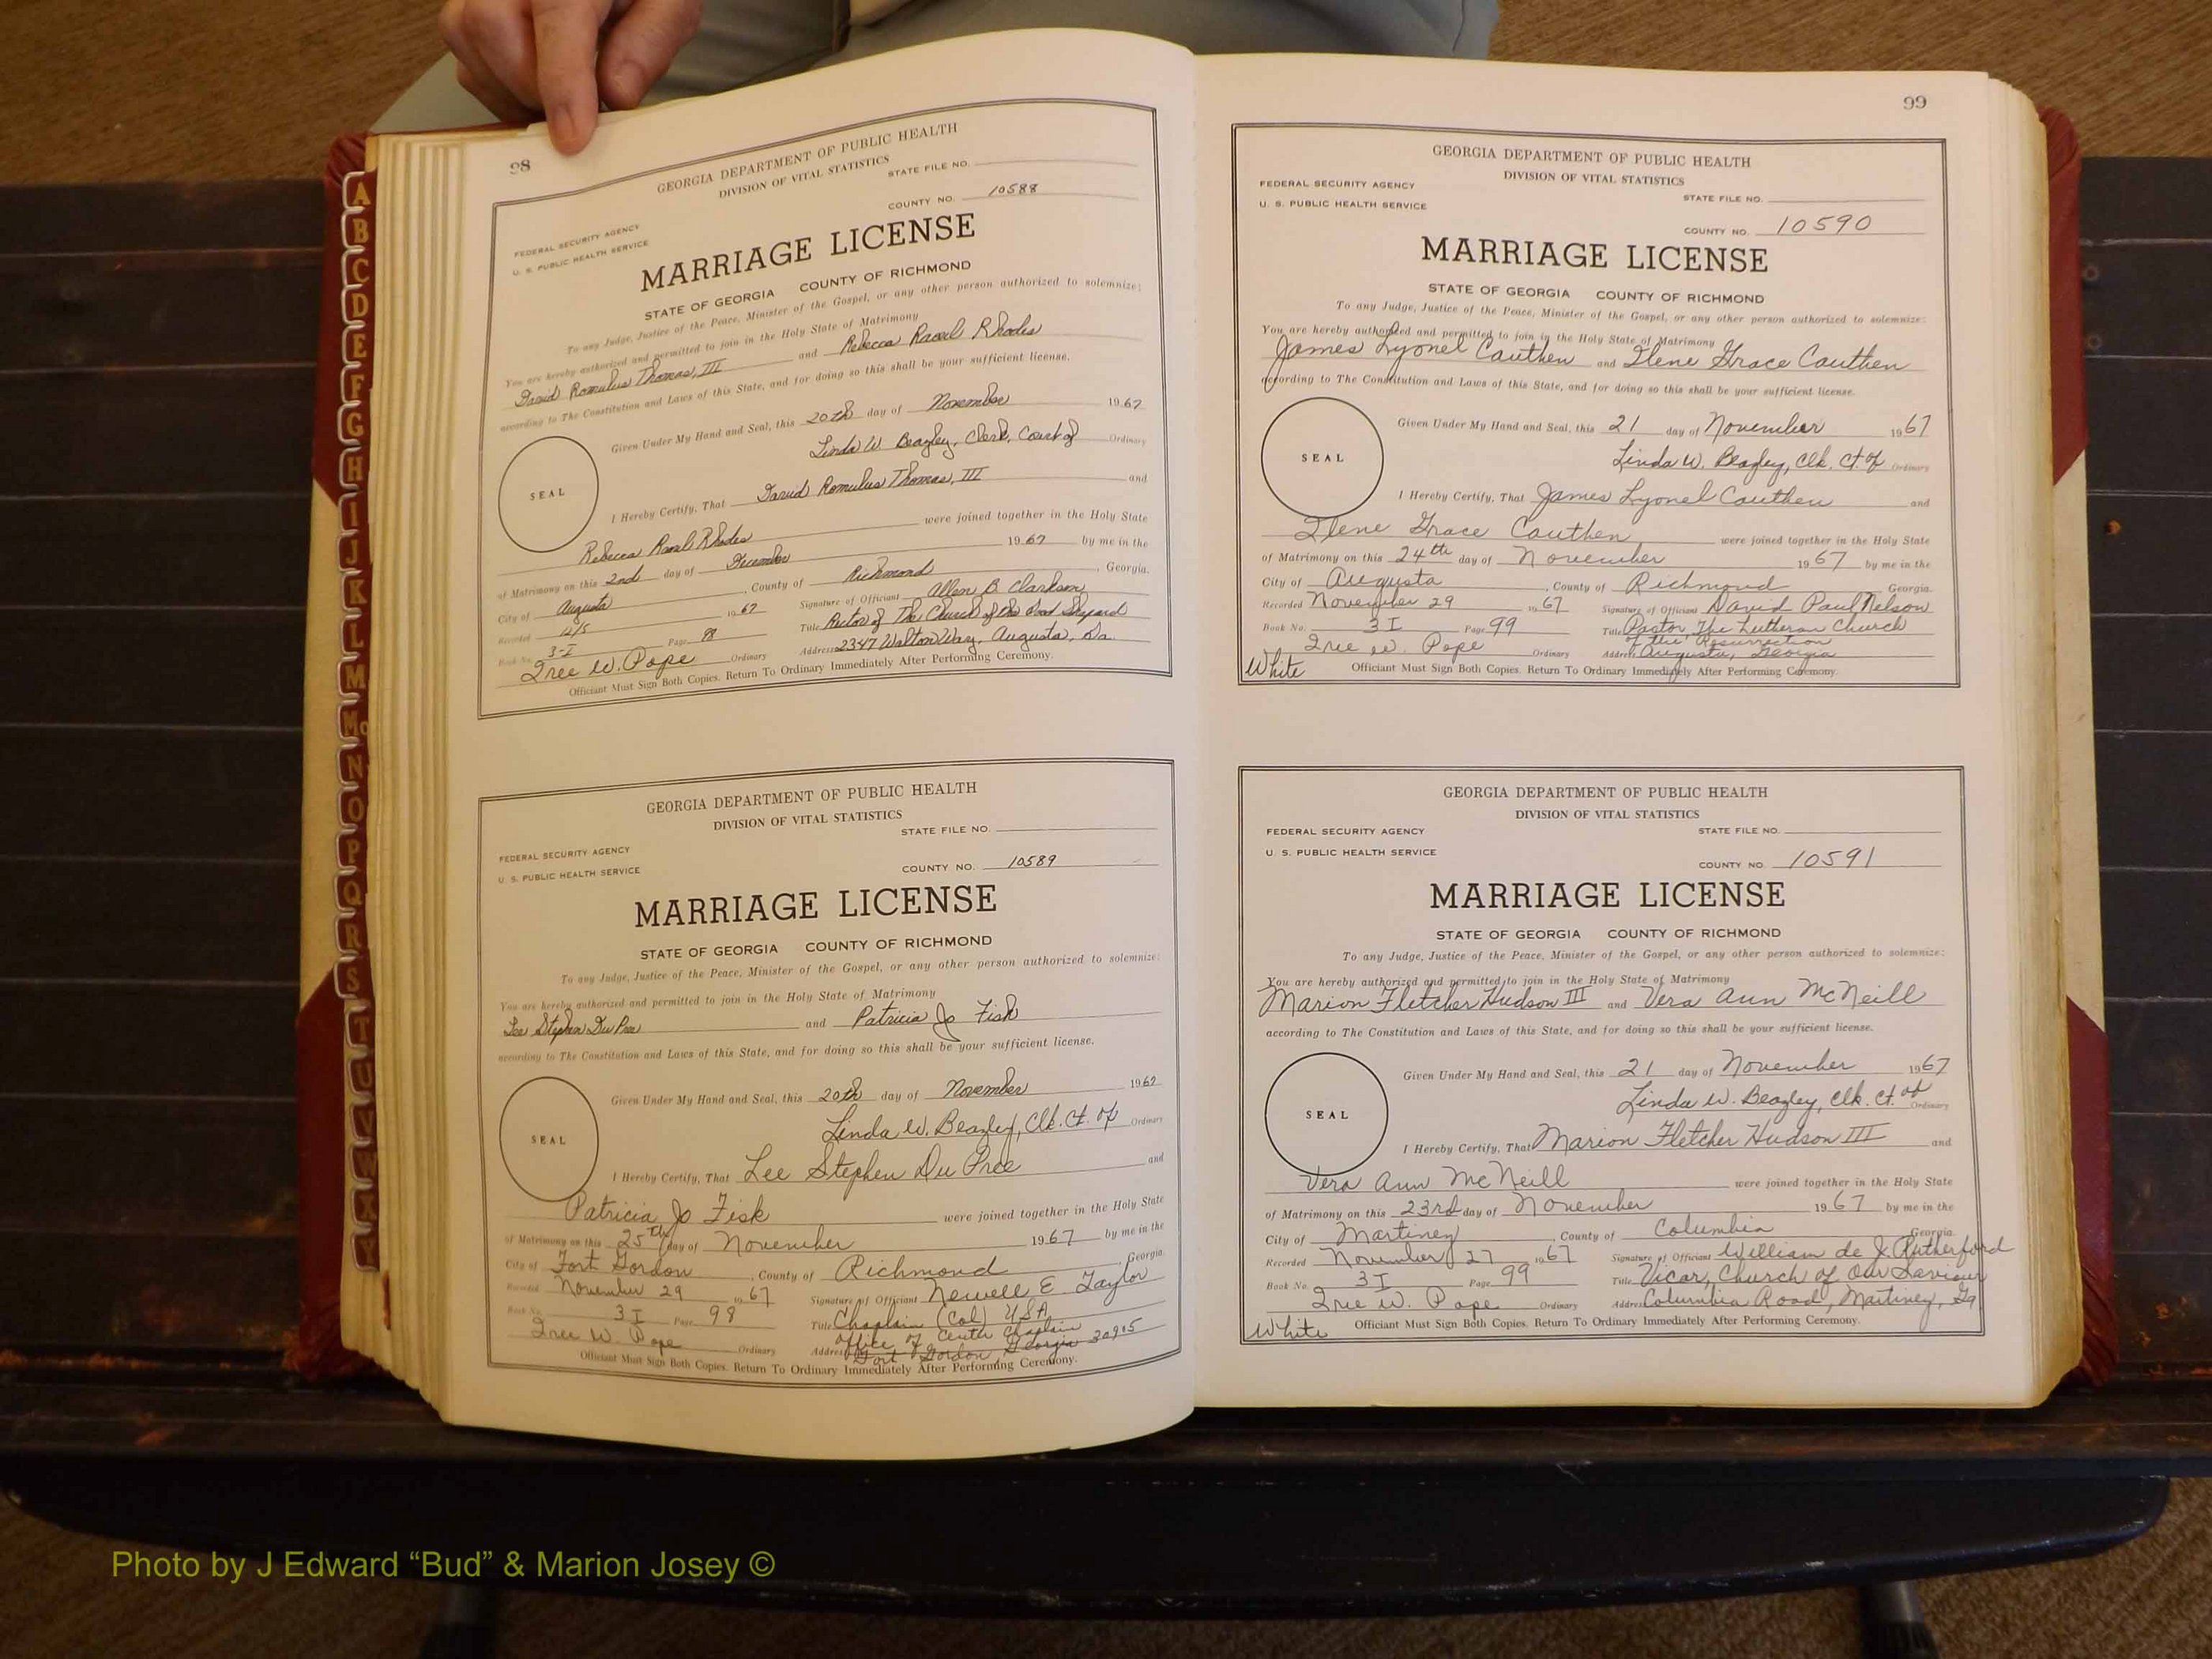 98
GEORGIA DEPARTMENT OF PUBLIC HEALTH
DIVISION OF VITAL STATISTICS
STATE FILE NO.
FEDERAL SECURITY AGENCY
U. S. PUBLIC HEALTH SERVICE
COUNTY NO. 10588
MARRIAGE LICENSE
STATE OF GEORGIA COUNTY OF RICHMOND
To any Judge, Justice of the Peace, Minister of the Gospel, or any other person authorized to solemnize:
You are hereby authorized and permitted to join in the Holy State of Matrimony
David Romulus Thomas, III and Rebecca Raoul Rhodes
according to The Constitution and Laws of this State, and for doing so this shall be your sufficient license.
Given Under My Hand and Seal, this 20th day of November 1967
Linda W. Beazley, Clerk, Court of Ordinary
SEAL
I Hereby Certify, That David Romulus Thomas, III and
Rebecca Raoul Rhodes were joined together in the Holy State
of Matrimony on this 2nd day of December 1967 by me in the
City of Augusta, County of Richmond, Georgia.
Recorded 12/5 1967 Signature of Officiant Allen B. Clarkson
Book No. 3-I Page 98 Title Rector of The Church of the Good Shepard
Iree W. Pope Ordinary Address 2347 Walton Way, Augusta, Ga.
Officiant Must Sign Both Copies. Return To Ordinary Immediately After Performing Ceremony.
GEORGIA DEPARTMENT OF PUBLIC HEALTH
DIVISION OF VITAL STATISTICS
STATE FILE NO.
FEDERAL SECURITY AGENCY
U. S. PUBLIC HEALTH SERVICE
COUNTY NO. 10589
MARRIAGE LICENSE
STATE OF GEORGIA COUNTY OF RICHMOND
To any Judge, Justice of the Peace, Minister of the Gospel, or any other person authorized to solemnize:
You are hereby authorized and permitted to join in the Holy State of Matrimony
Lee Stephen Du Pree and Patricia Jo Fisk
according to The Constitution and Laws of this State, and for doing so this shall be your sufficient license.
Given Under My Hand and Seal, this 20th day of November 1967
Linda W. Beazley, Clk. Ct. of Ordinary
SEAL
I Hereby Certify, That Lee Stephen Du Pree and
Patricia Jo Fisk were joined together in the Holy State
of Matrimony on this 25th day of November 1967 by me in the
City of Fort Gordon, County of Richmond Georgia.
Recorded November 29 1967 Signature of Officiant Newell E. Taylor
Book No. 3 I Page 98 Title Chaplain (Col) USA
Office of Chaplain
Iree W. Pope Ordinary Address Fort Gordon, Georgia 30905
Officiant Must Sign Both Copies. Return To Ordinary Immediately After Performing Ceremony.
99
GEORGIA DEPARTMENT OF PUBLIC HEALTH
DIVISION OF VITAL STATISTICS
FEDERAL SECURITY AGENCY
STATE FILE NO.
U. S. PUBLIC HEALTH SERVICE
COUNTY NO. 10590
MARRIAGE LICENSE
STATE OF GEORGIA COUNTY OF RICHMOND
To any Judge, Justice of the Peace, Minister of the Gospel, or any other person authorized to solemnize:
You are hereby authorized and permitted to join in the Holy State of Matrimony
James Lyonel Cauthen and Ilene Grace Cauthen
according to The Constitution and Laws of this State, and for doing so this shall be your sufficient license.
Given Under My Hand and Seal, this 21 day of November 1967
Linda W. Beazley, Clk. Ct. of Ordinary
SEAL
I Hereby Certify, That James Lyonel Cauthen and
Ilene Grace Cauthen were joined together in the Holy State
of Matrimony on this 24th day of November 1967 by me in the
City of Augusta, County of Richmond Georgia.
Recorded November 29 1967 Signature of Officiant David Paul Nelson
Book No. 3 I Page 99 Title Pastor, The Lutheran Church
of the Resurrection
Iree W. Pope Ordinary Address Augusta, Georgia
White Officiant Must Sign Both Copies. Return To Ordinary Immediately After Performing Ceremony.
GEORGIA DEPARTMENT OF PUBLIC HEALTH
DIVISION OF VITAL STATISTICS
FEDERAL SECURITY AGENCY
STATE FILE NO.
U. S. PUBLIC HEALTH SERVICE
COUNTY NO. 10591
MARRIAGE LICENSE
STATE OF GEORGIA COUNTY OF RICHMOND
To any Judge, Justice of the Peace, Minister of the Gospel, or any other person authorized to solemnize:
You are hereby authorized and permitted to join in the Holy State of Matrimony
Marion Fletcher Hudson III and Vera Ann McNeill
according to The Constitution and Laws of this State, and for doing so this shall be your sufficient license.
Given Under My Hand and Seal, this 21 day of November 1967
Linda W. Beazley, Clk. Ct. of Ordinary
SEAL
I Hereby Certify, That Marion Fletcher Hudson III and
Vera Ann McNeill were joined together in the Holy State
of Matrimony on this 23rd day of November 1967 by me in the
City of Martinez, County of Columbia Georgia.
Recorded November 27 1967 Signature of Officiant William de J. Rutherford
Book No. 3 I Page 99 Title Vicar, Church of Our Saviour
Iree W. Pope Ordinary Address Columbia Road, Martinez, Ga
White Officiant Must Sign Both Copies. Return To Ordinary Immediately After Performing Ceremony.
A
B
C
D
E
F
G
H
I
J
K
L
M
Mc
N
O
P
Q
R
S
T
U
V
W
X
Y
Photo by J Edward “Bud” & Marion Josey ©